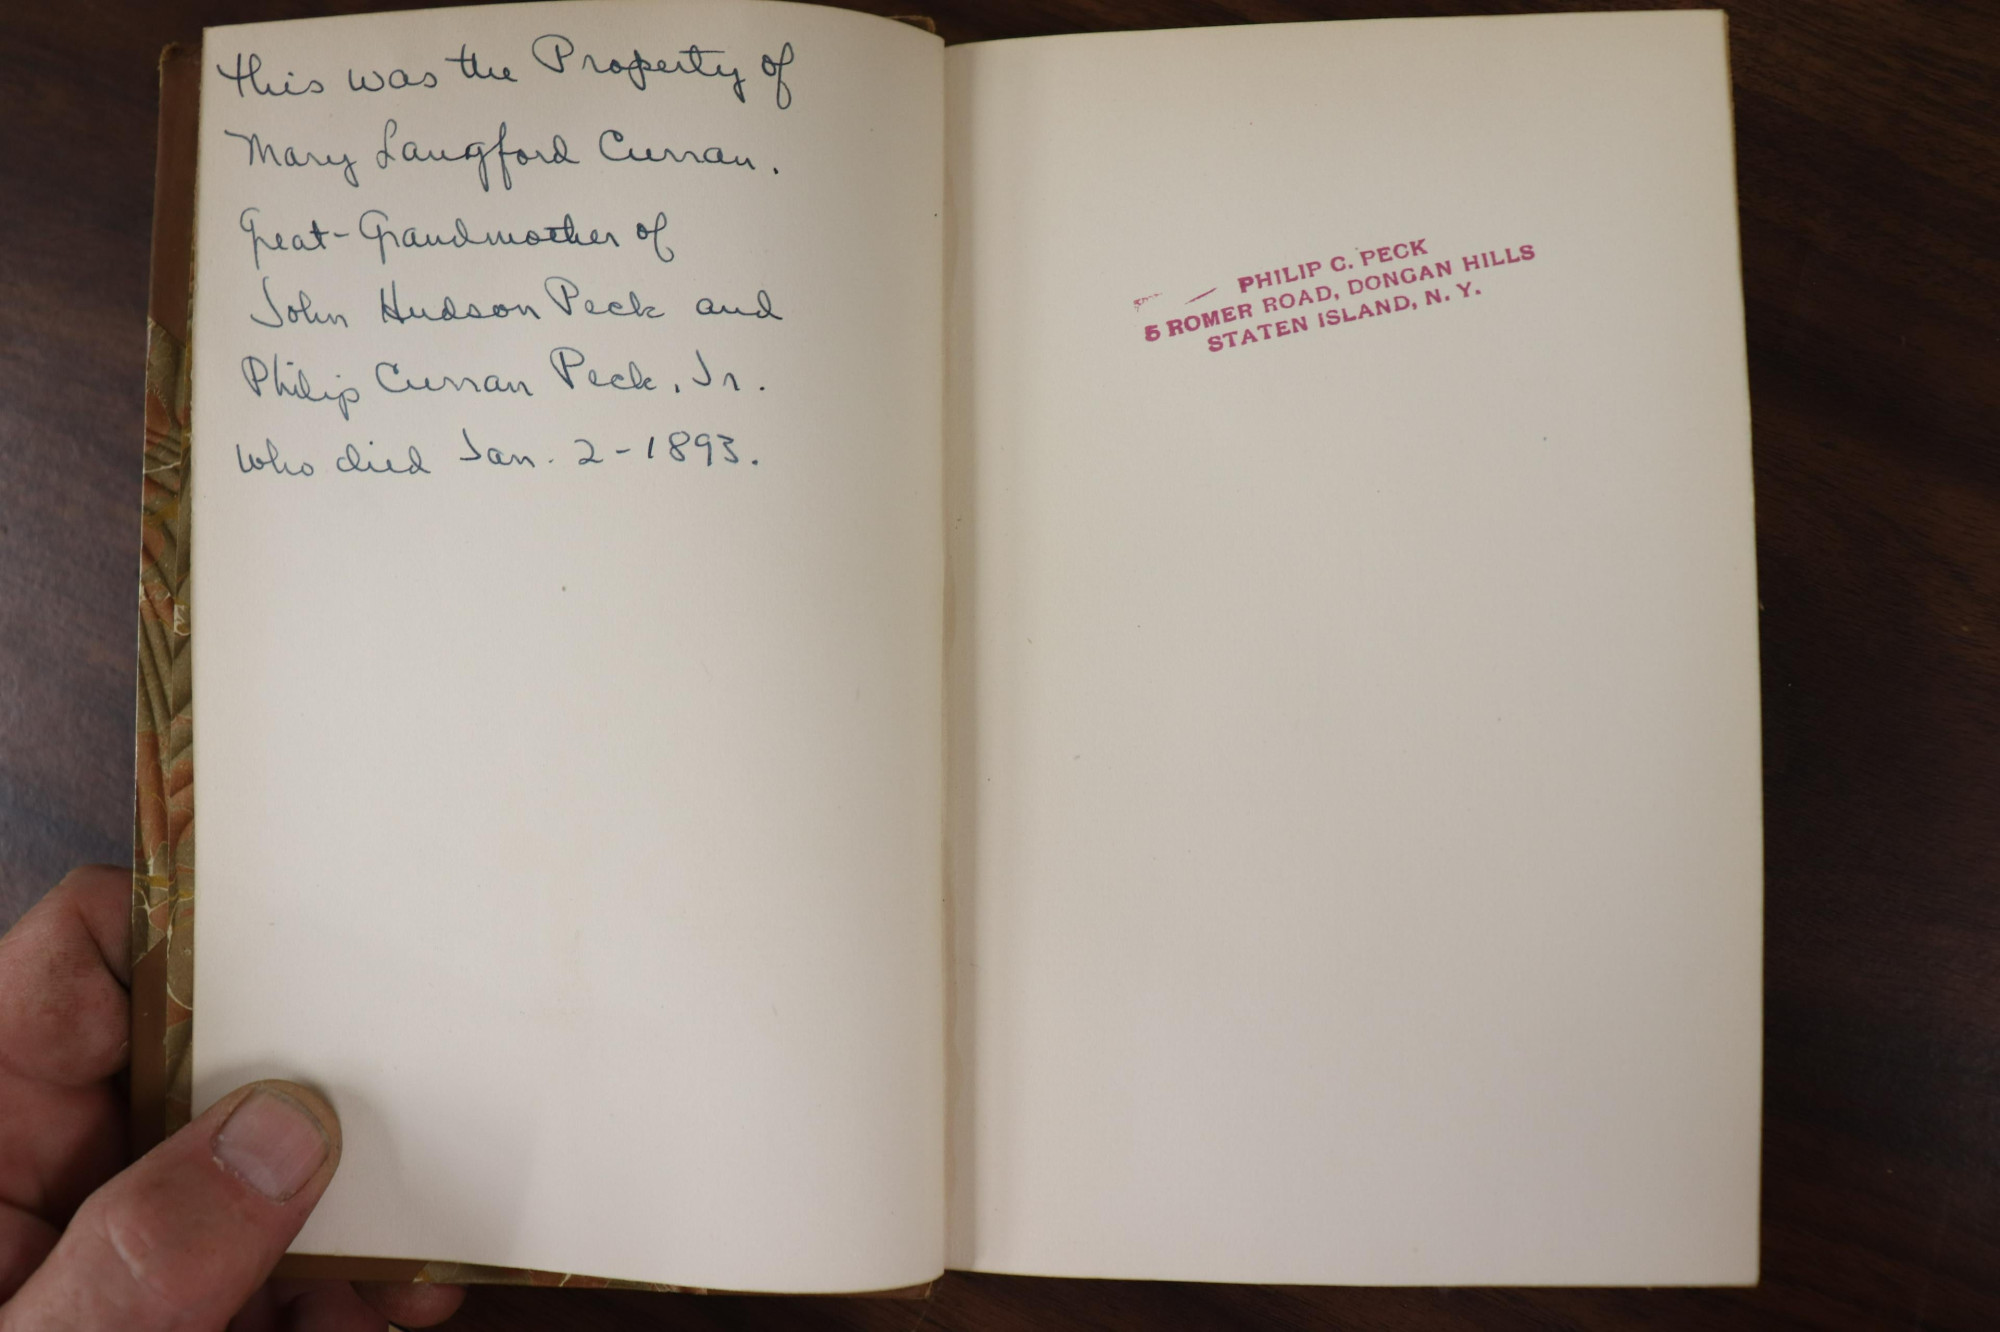 This was the Property of
Mary Langford Curran.
Great-Grandmother of
John Hudson Peck and
Philip Curran Peck, Jr.
who died Jan. 2-1893.
PHILIP C. PECK
5 ROMER ROAD, DONGAN HILLS
STATEN ISLAND, N. Y.